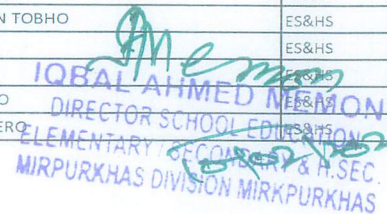 N TOBHO ES&HS
ES&HS
ES&HS
IQBAL AHMED MEMON
O ES&HS
DIRECTOR SCHOOL EDUCATION
ERO ES&HS
ELEMENTARY / SECONDARY & H.SEC.
MIRPURKHAS DIVISION MIRKPURKHAS